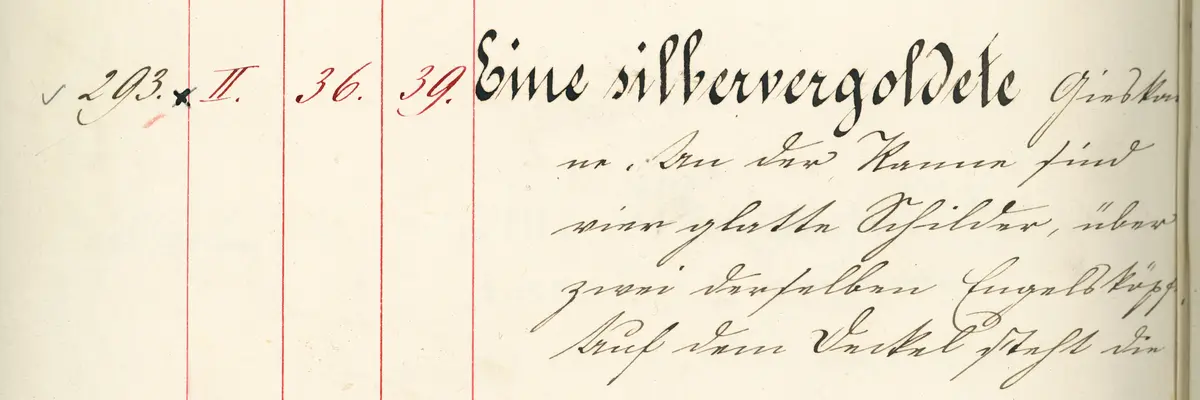 293. II. 36. 39. Eine silbervergoldete Gieskan
ne. An der Kanne sind
vier glatte Schilder, über
zwei derselben Engelsköpf.
Auf dem Deckel steht die